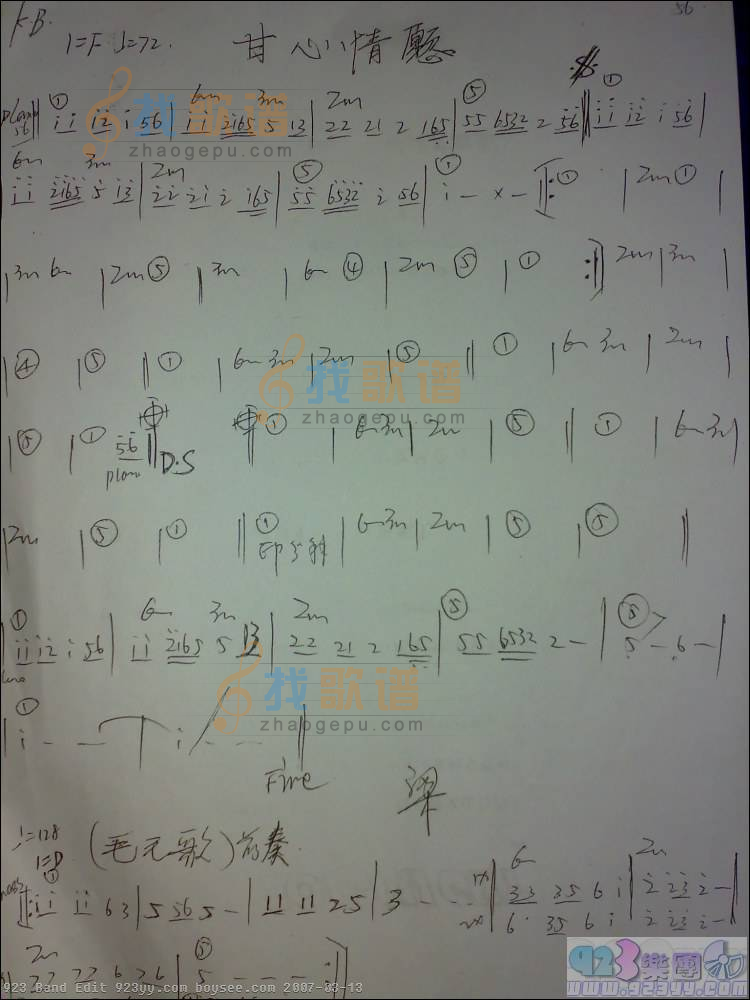 K.B. 56
1=F ♩=72. 甘心情愿
piano 56 ‖ ① i i i2 i 56 | 6m i i 2165 3m 5 13 | 2m 22 21 2 165 | ⑤ 55 6532 2 56 ‖ ① i i i2 i 56 |
6m i i 2165 3m 5 13 | 2m 22 21 2 165 | ⑤ 55 6532 2 56 | ① i - × - ‖: ① | 2m ① |
| 3m 6m | 2m ⑤ | 3m | 6m ④ | 2m ⑤ | ① :‖ 2m | 3m |
| ④ | ⑤ ‖ ① | 6m 3m | 2m | ⑤ ‖ ① | 6m 3m | 2m |
| ⑤ | ① 56 ‖ D.S ‖ ① | 6m 3m | 2m | ⑤ ‖ ① | 6m 3m |
piano
| 2m | ⑤ | ① ‖ ① | 6m 3m | 2m | ⑤ | ⑤ ‖
| ① i i i2 i 56 | 6m i i 2165 3m 5 13 | 2m 22 21 2 165 | ⑤ 55 6532 2 - | ⑤ 5 - 6 - |
| ① i - - - | i - - - ‖
Fine
♩=128
1=D
(毛毛歌)前奏
‖: ① i i i i 6 3 | 5 56 5 - | 11 11 25 | 3 - - - | 6m 33 35 6 i | 2m 2 23 2 - |
6· 35 6 i | 2 23 2 - |
2m 22 22 6 26 | ⑤ 5 - - - :‖
找歌谱
zhaogepu.com
找歌谱
zhaogepu.com
找歌谱
zhaogepu.com
923 Band Edit 923yy.com boysee.com 2007-03-13
923樂團
www.923yy.com